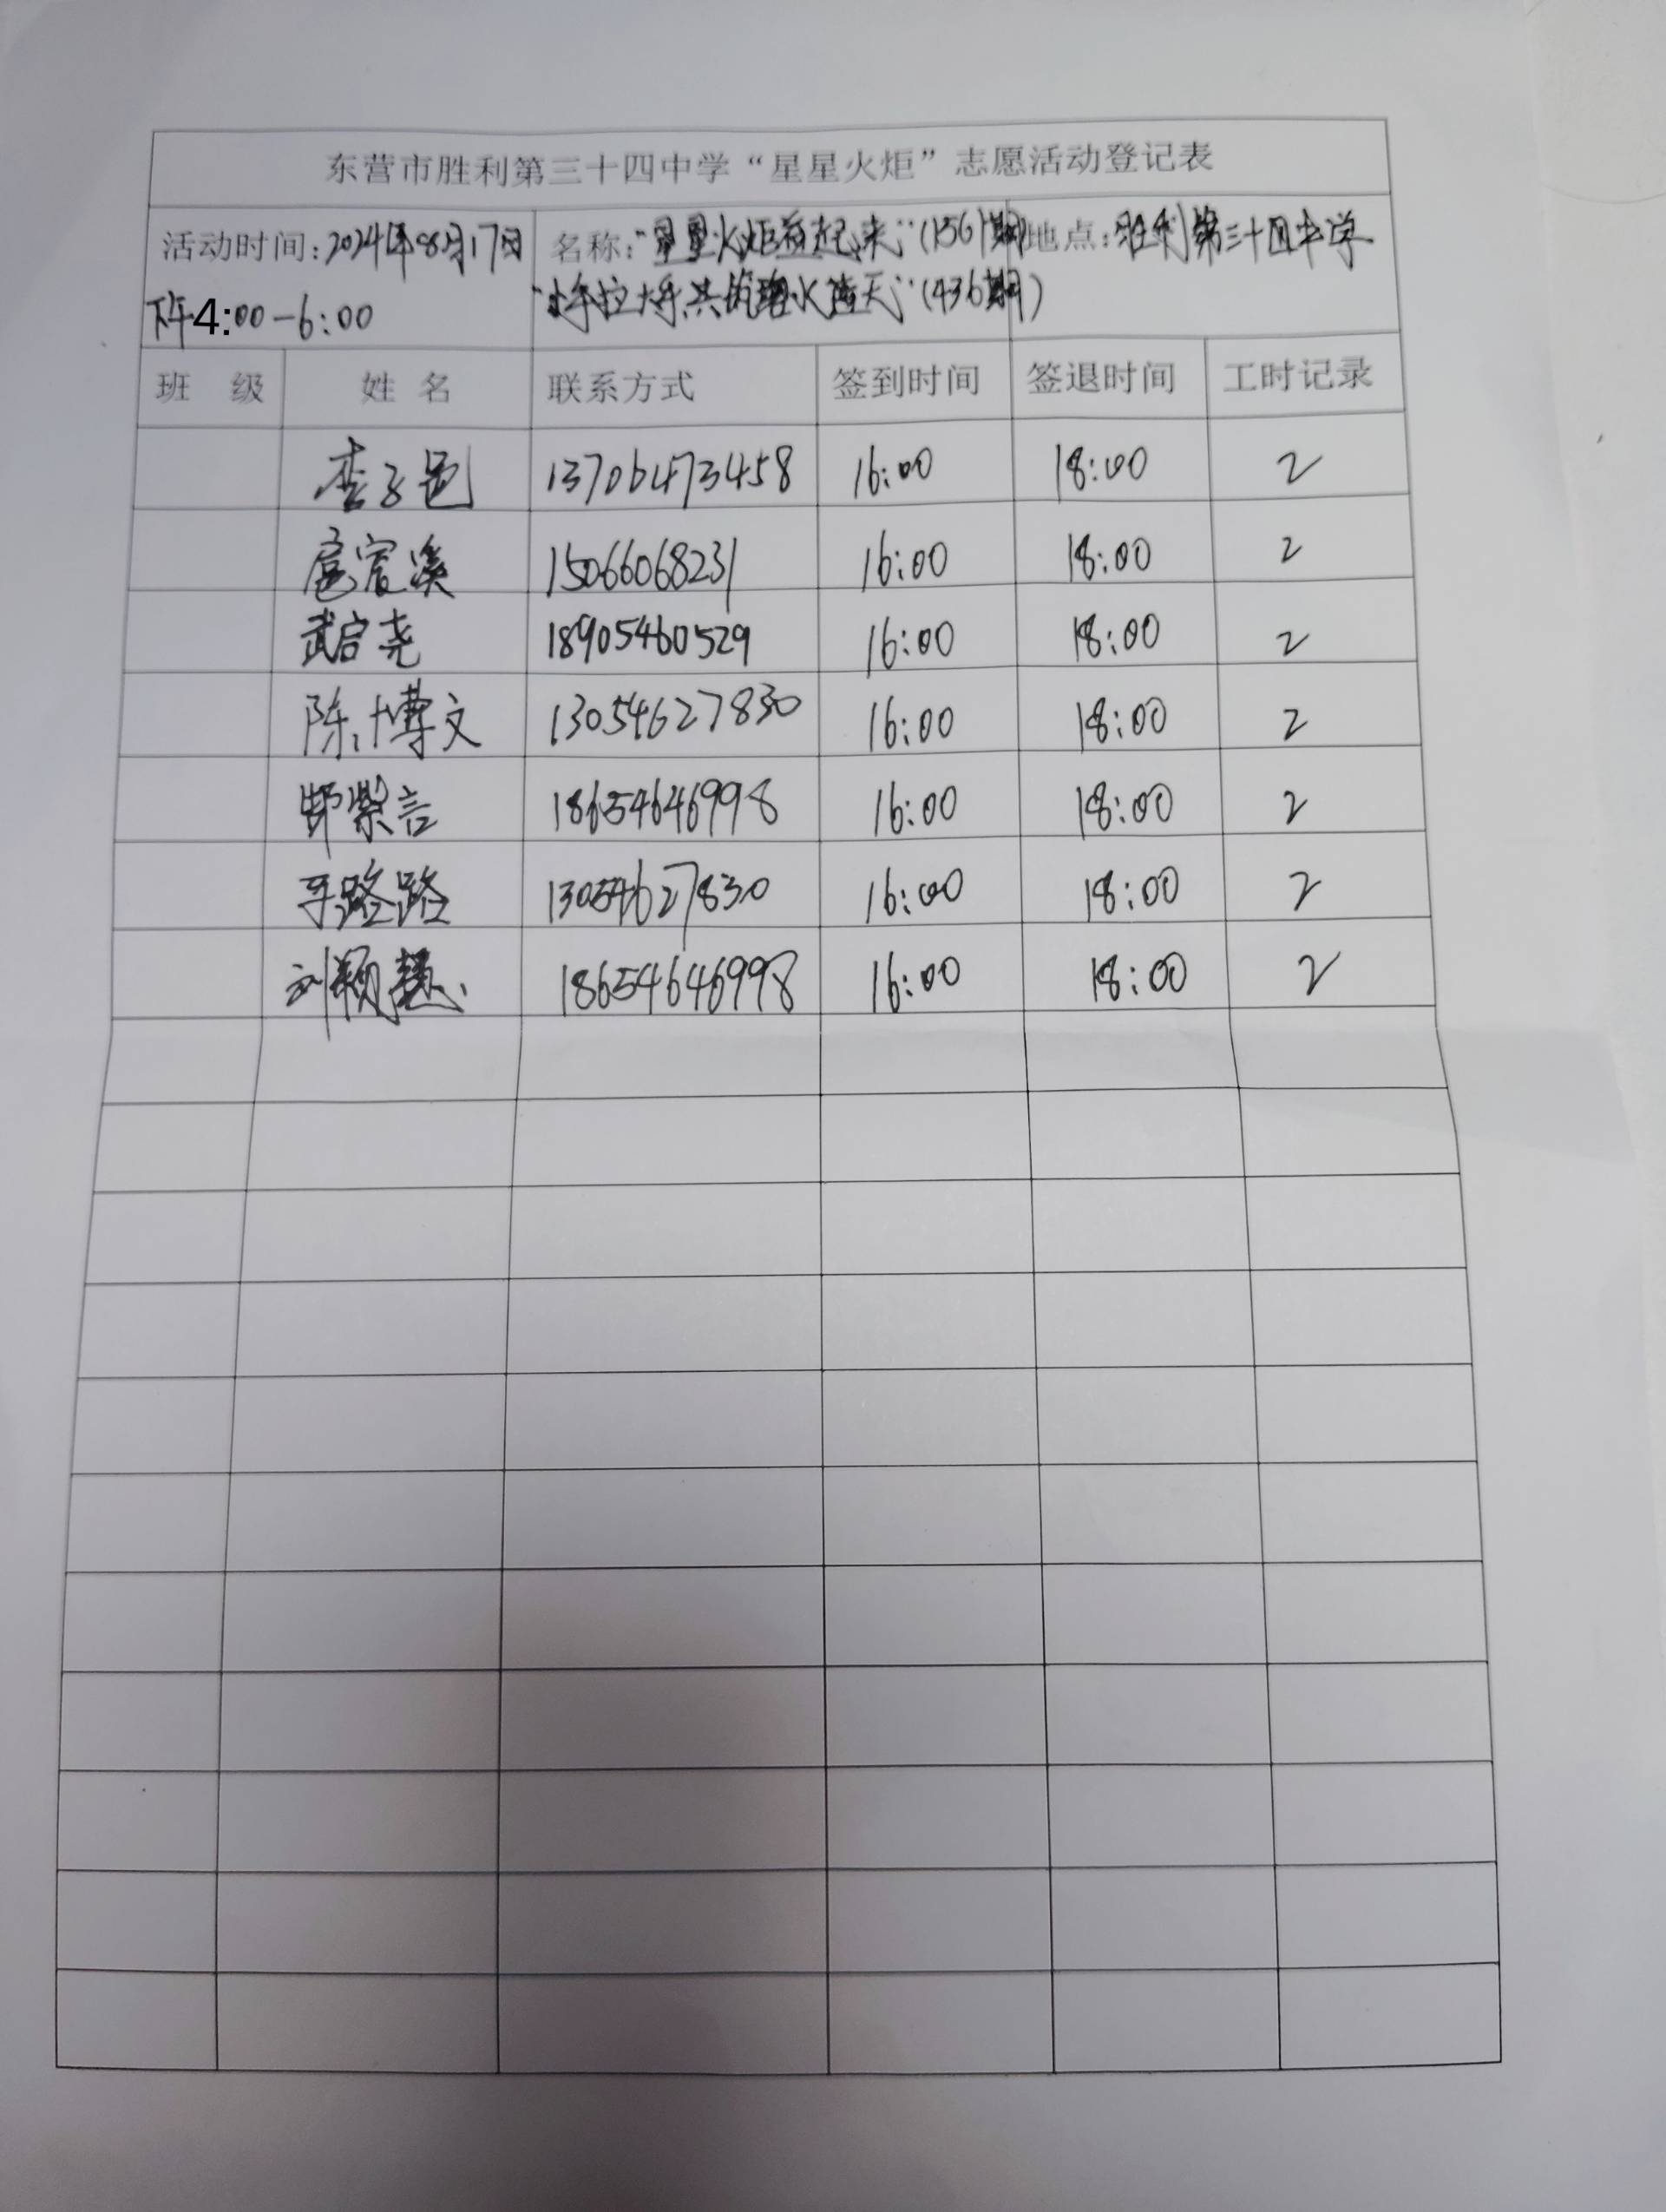 东营市胜利第三十四中学“星星火炬”志愿活动登记表
活动时间:2024年8月17日 名称:“星星火炬 起来”(1561期) 地点:胜利第三十四中学
下午4:00-6:00 “小手拉大手,共筑碧水蓝天”(436期)
班 级 姓 名 联系方式 签到时间 签退时间 工时记录
李子 13706473458 16:00 18:00 2
扈宸溪 15066068231 16:00 18:00 2
武启尧 18905460529 16:00 18:00 2
陈博文 13054627830 16:00 18:00 2
紫言 18654646998 16:00 18:00 2
路路 13054627830 16:00 18:00 2
刘颖慧 18654646998 16:00 18:00 2